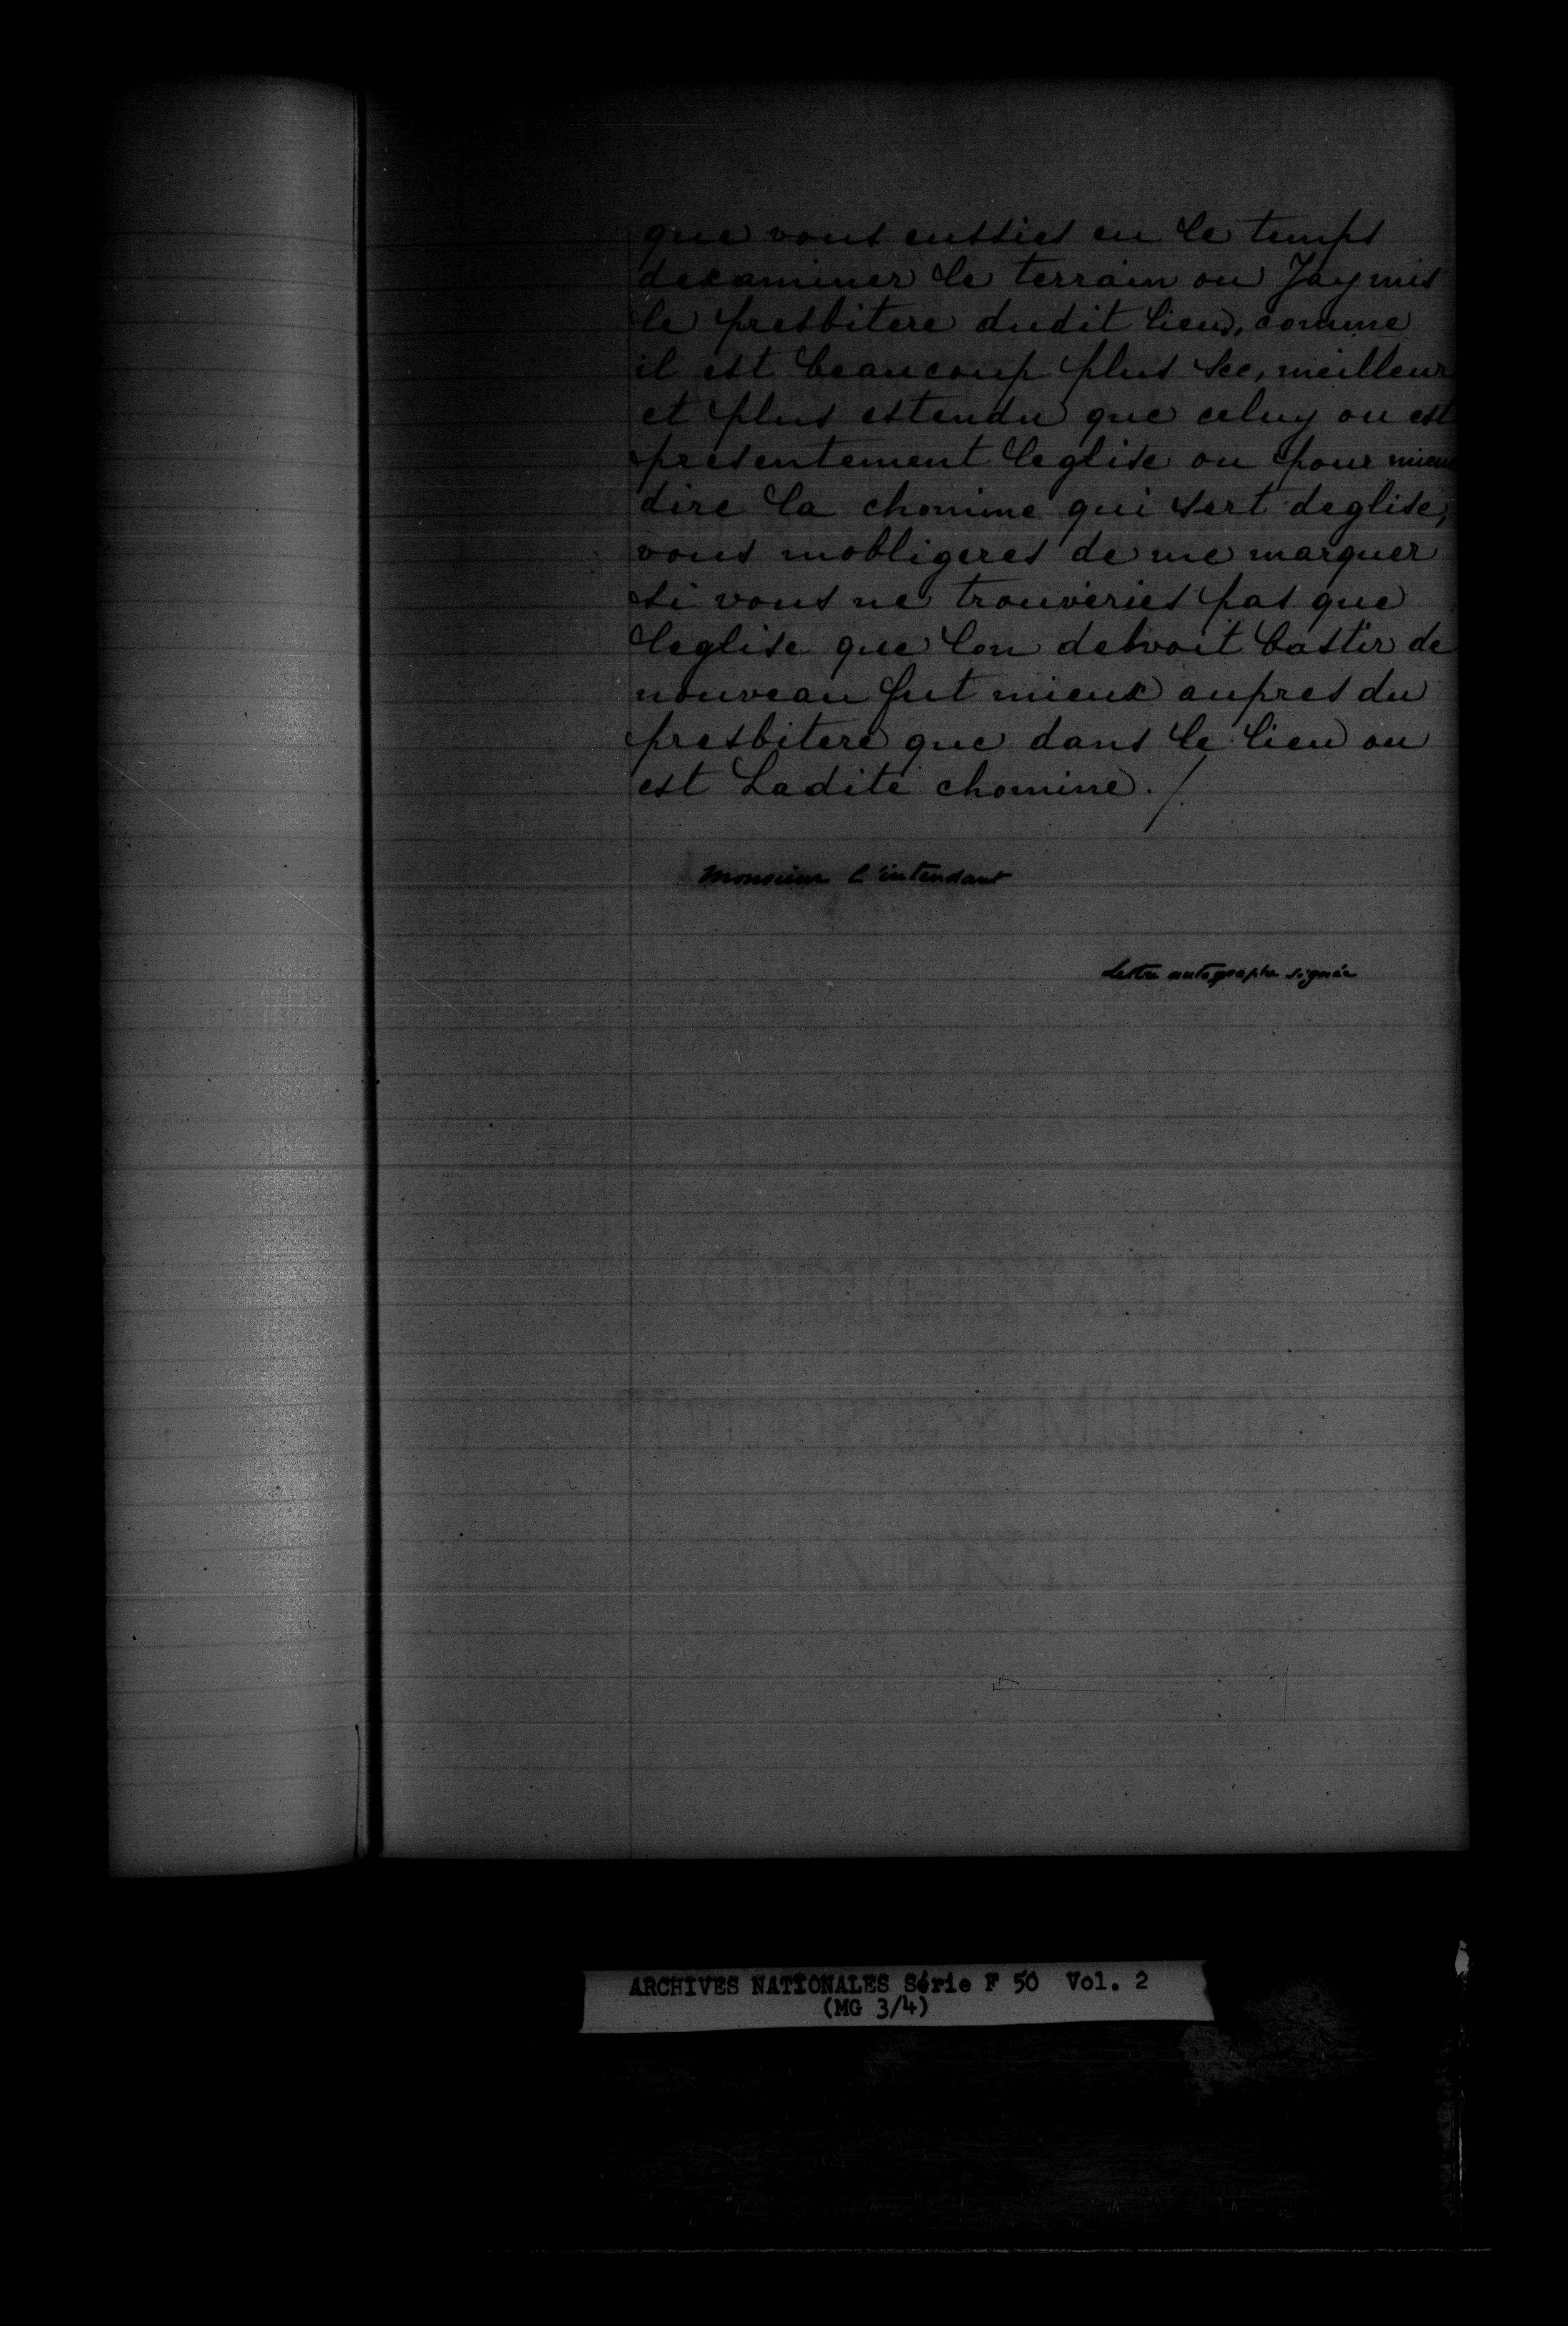 que vous eussies eu le temps
dexaminer le terrain ou Jay mis
le presbitere dudit lieu, comme
il est beaucoup plus sec, meilleur
et plus estendu que celuy ou est
presentement leglise ou pour mieux
dire la chomine qui sert deglise,
vous mobligeres de me marquer
si vous ne trouveries pas que
leglise que lon debvoit bastir de
nouveau fut mieux aupres du
presbitere que dans le lieu ou
est Ladite chomine. /.
Monsieur l'intendant
Lettre autographe signée
ARCHIVES NATIONALES Série F 50 Vol. 2
(MG 3/4)